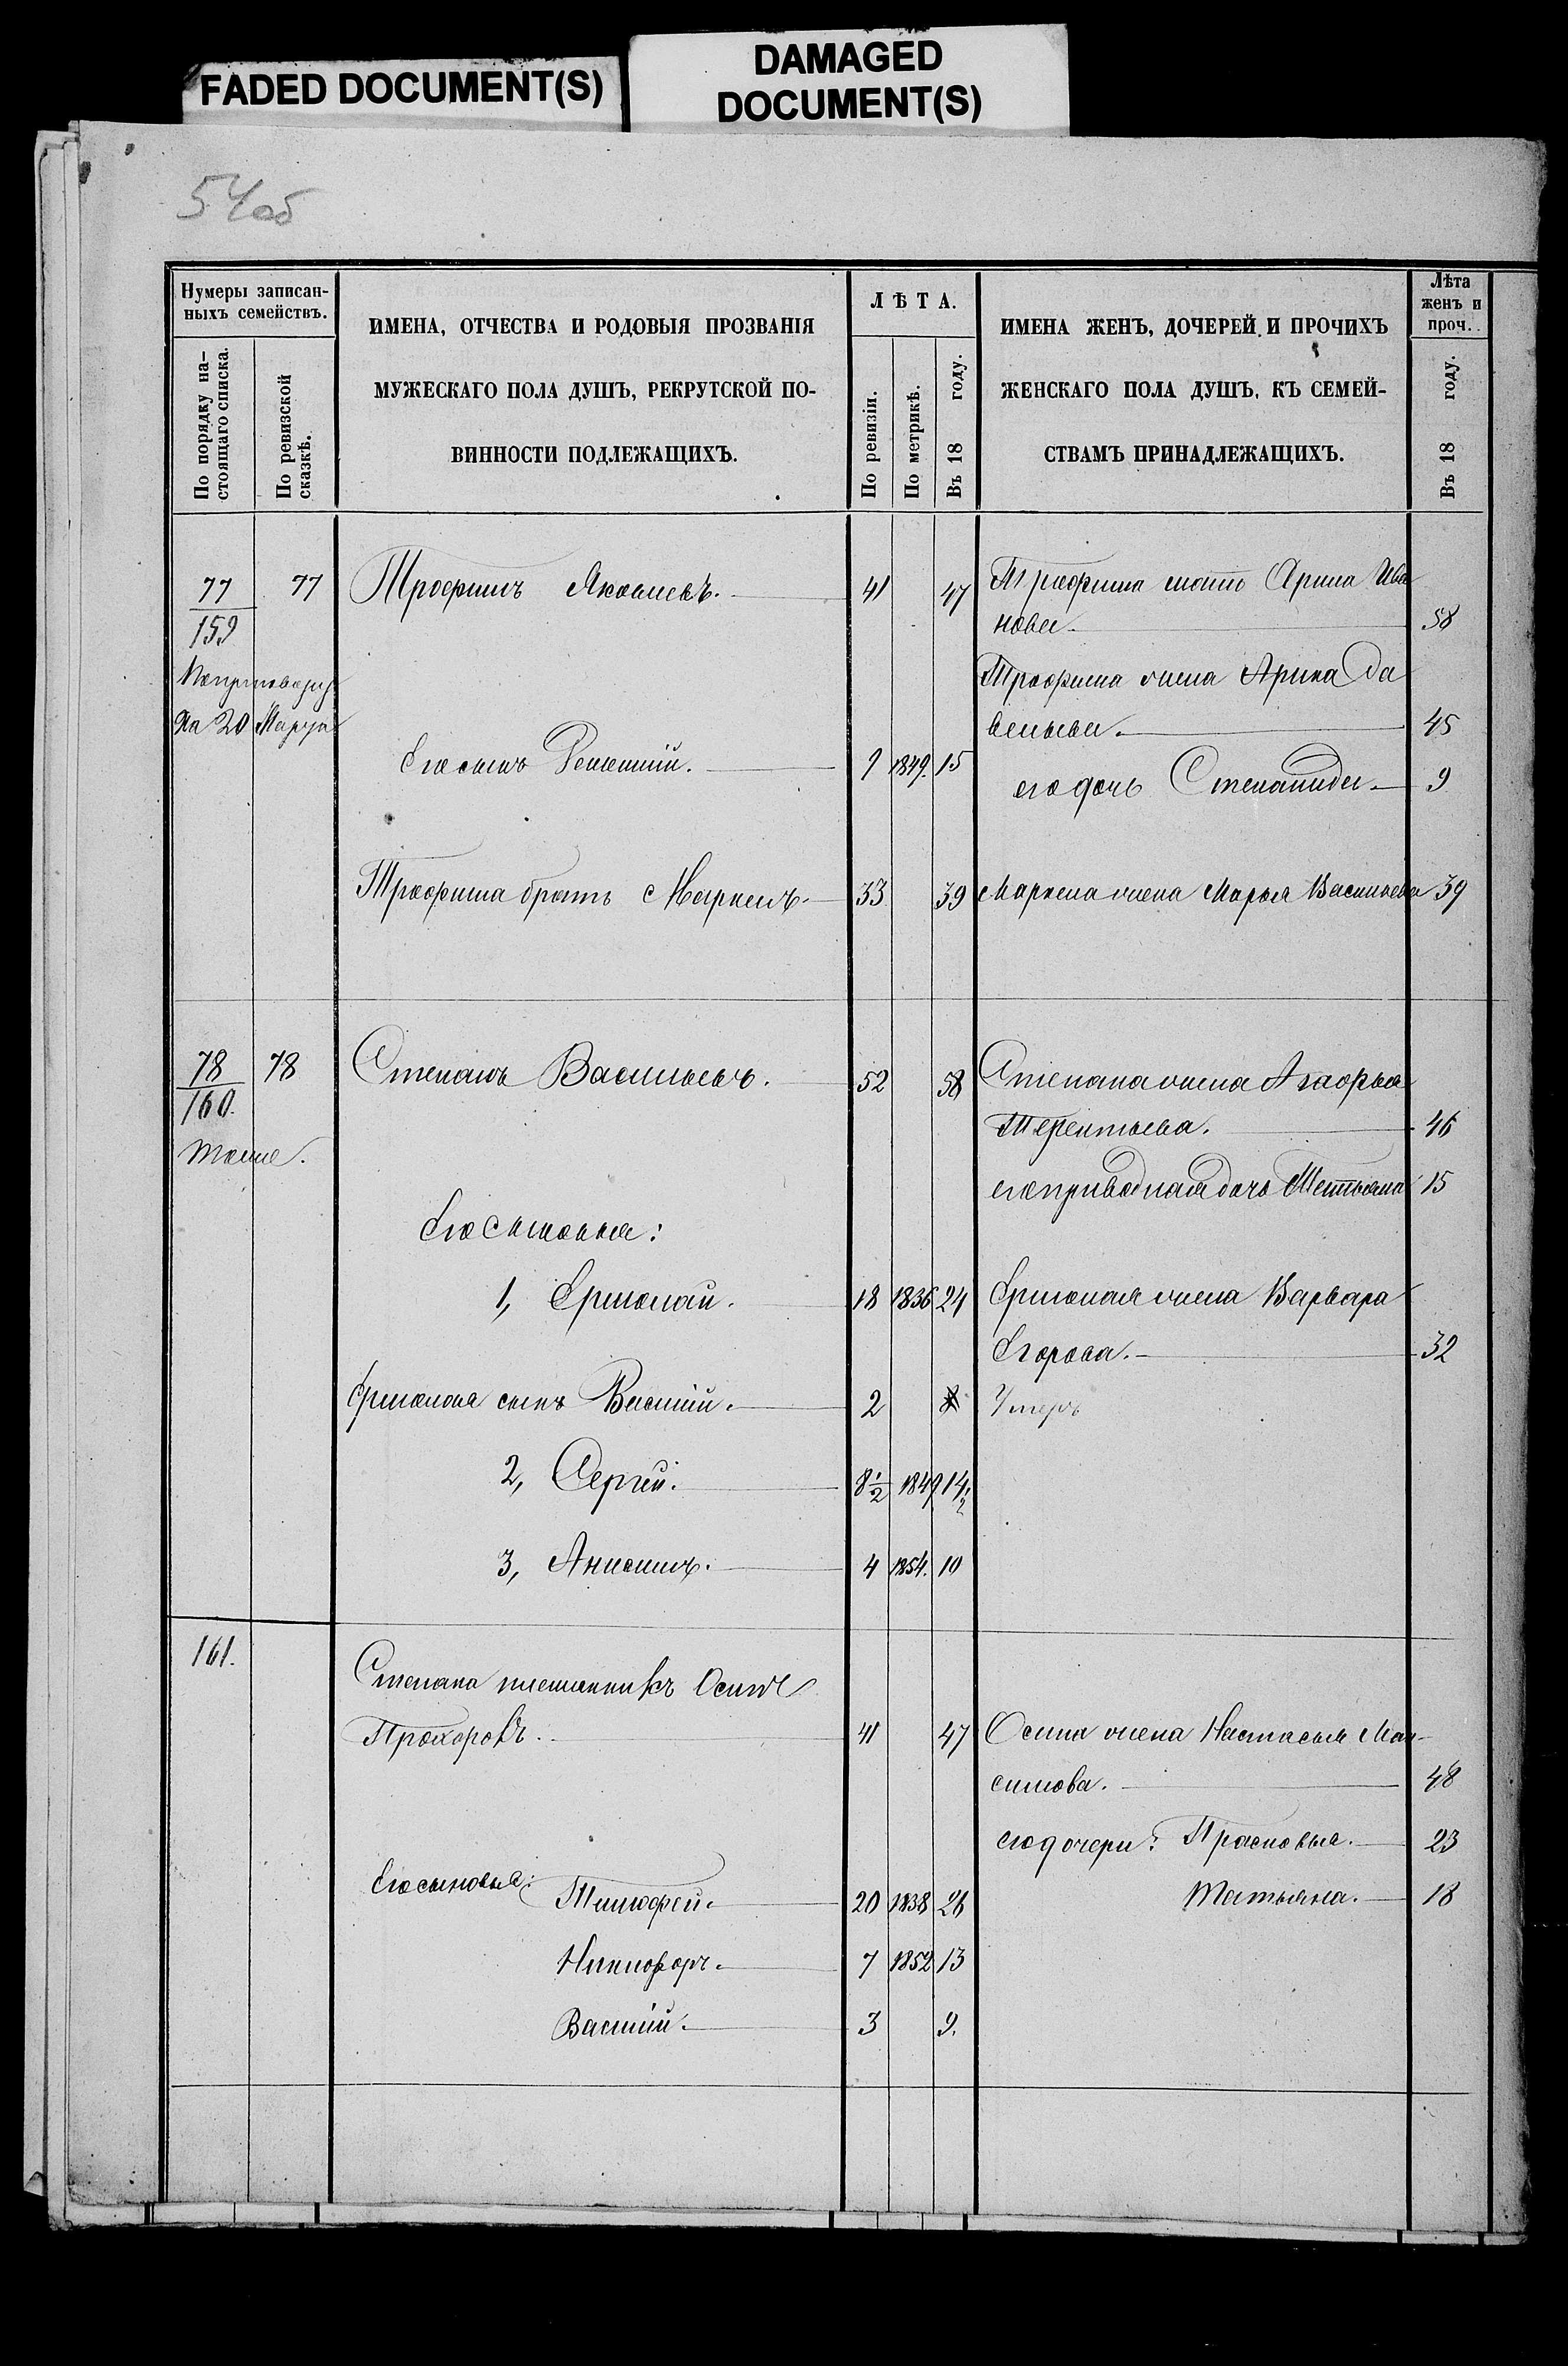 FADED DOCUMENT(S)
DAMAGED
DOCUMENT(S)
54об
Нумеры записан-
ныхъ семействъ.
По порядку на-
стоящаго списка.
По ревизской
сказкѣ.
ИМЕНА, ОТЧЕСТВА И РОДОВЫЯ ПРОЗВАНІЯ
МУЖЕСКАГО ПОЛА ДУШЪ, РЕКРУТСКОЙ ПО-
ВИННОСТИ ПОДЛЕЖАЩИХЪ.
ЛѢТА.
По ревизіи.
По метрикѣ.
Въ 18 году.
ИМЕНА ЖЕНЪ, ДОЧЕРЕЙ И ПРОЧИХЪ
ЖЕНСКАГО ПОЛА ДУШЪ, КЪ СЕМЕЙ-
СТВАМЪ ПРИНАДЛЕЖАЩИХЪ.
Лѣта
женъ и
проч.
Въ 18 году.
77 77 Трофимъ Яковлевъ. 41 47 Трофима мать Арина Ива
159 нова. 58
Трофима жена Арина Са
на 20 Марта вельева. 45
Его сынъ 9 1849. 15
его дочь Степанида. 9
Трофима братъ Маркелъ. 33 39 Маркела жена Марья Васильева 39
78 78 Степанъ Васильевъ. 52 58 Степана жена Агафья
160. Терентьева. 46
тоже.
его приводная дочь Тетьяна 15
Его сыновья:
1, Ермолай. 18 1836 24 Ермолая жена Варвара
Егорова. 32
Ермолая сынъ Василій. 2 8 Умеръ
2, Сергѣй. 8½ 1849 14½
3, Анисимъ. 4 1854. 10
161.
Степана племянникъ Осипъ
Прохоровъ. 41 47 Осипа жена Настасья Мак-
симова. 48
его дочери: Прасковья. 23
Его сыновья: Тимофей. 20 1838 26 Татьяна. 18
Никифоръ. 7 1852 13
Василій. 3 9.